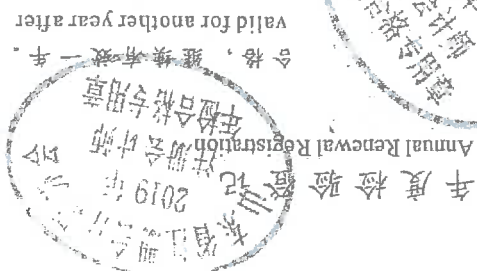 年度检验登记
Annual Renewal Registration
合格,继续有效一年.
valid for another year after
2019 年
注册会计师
年检合格专用章